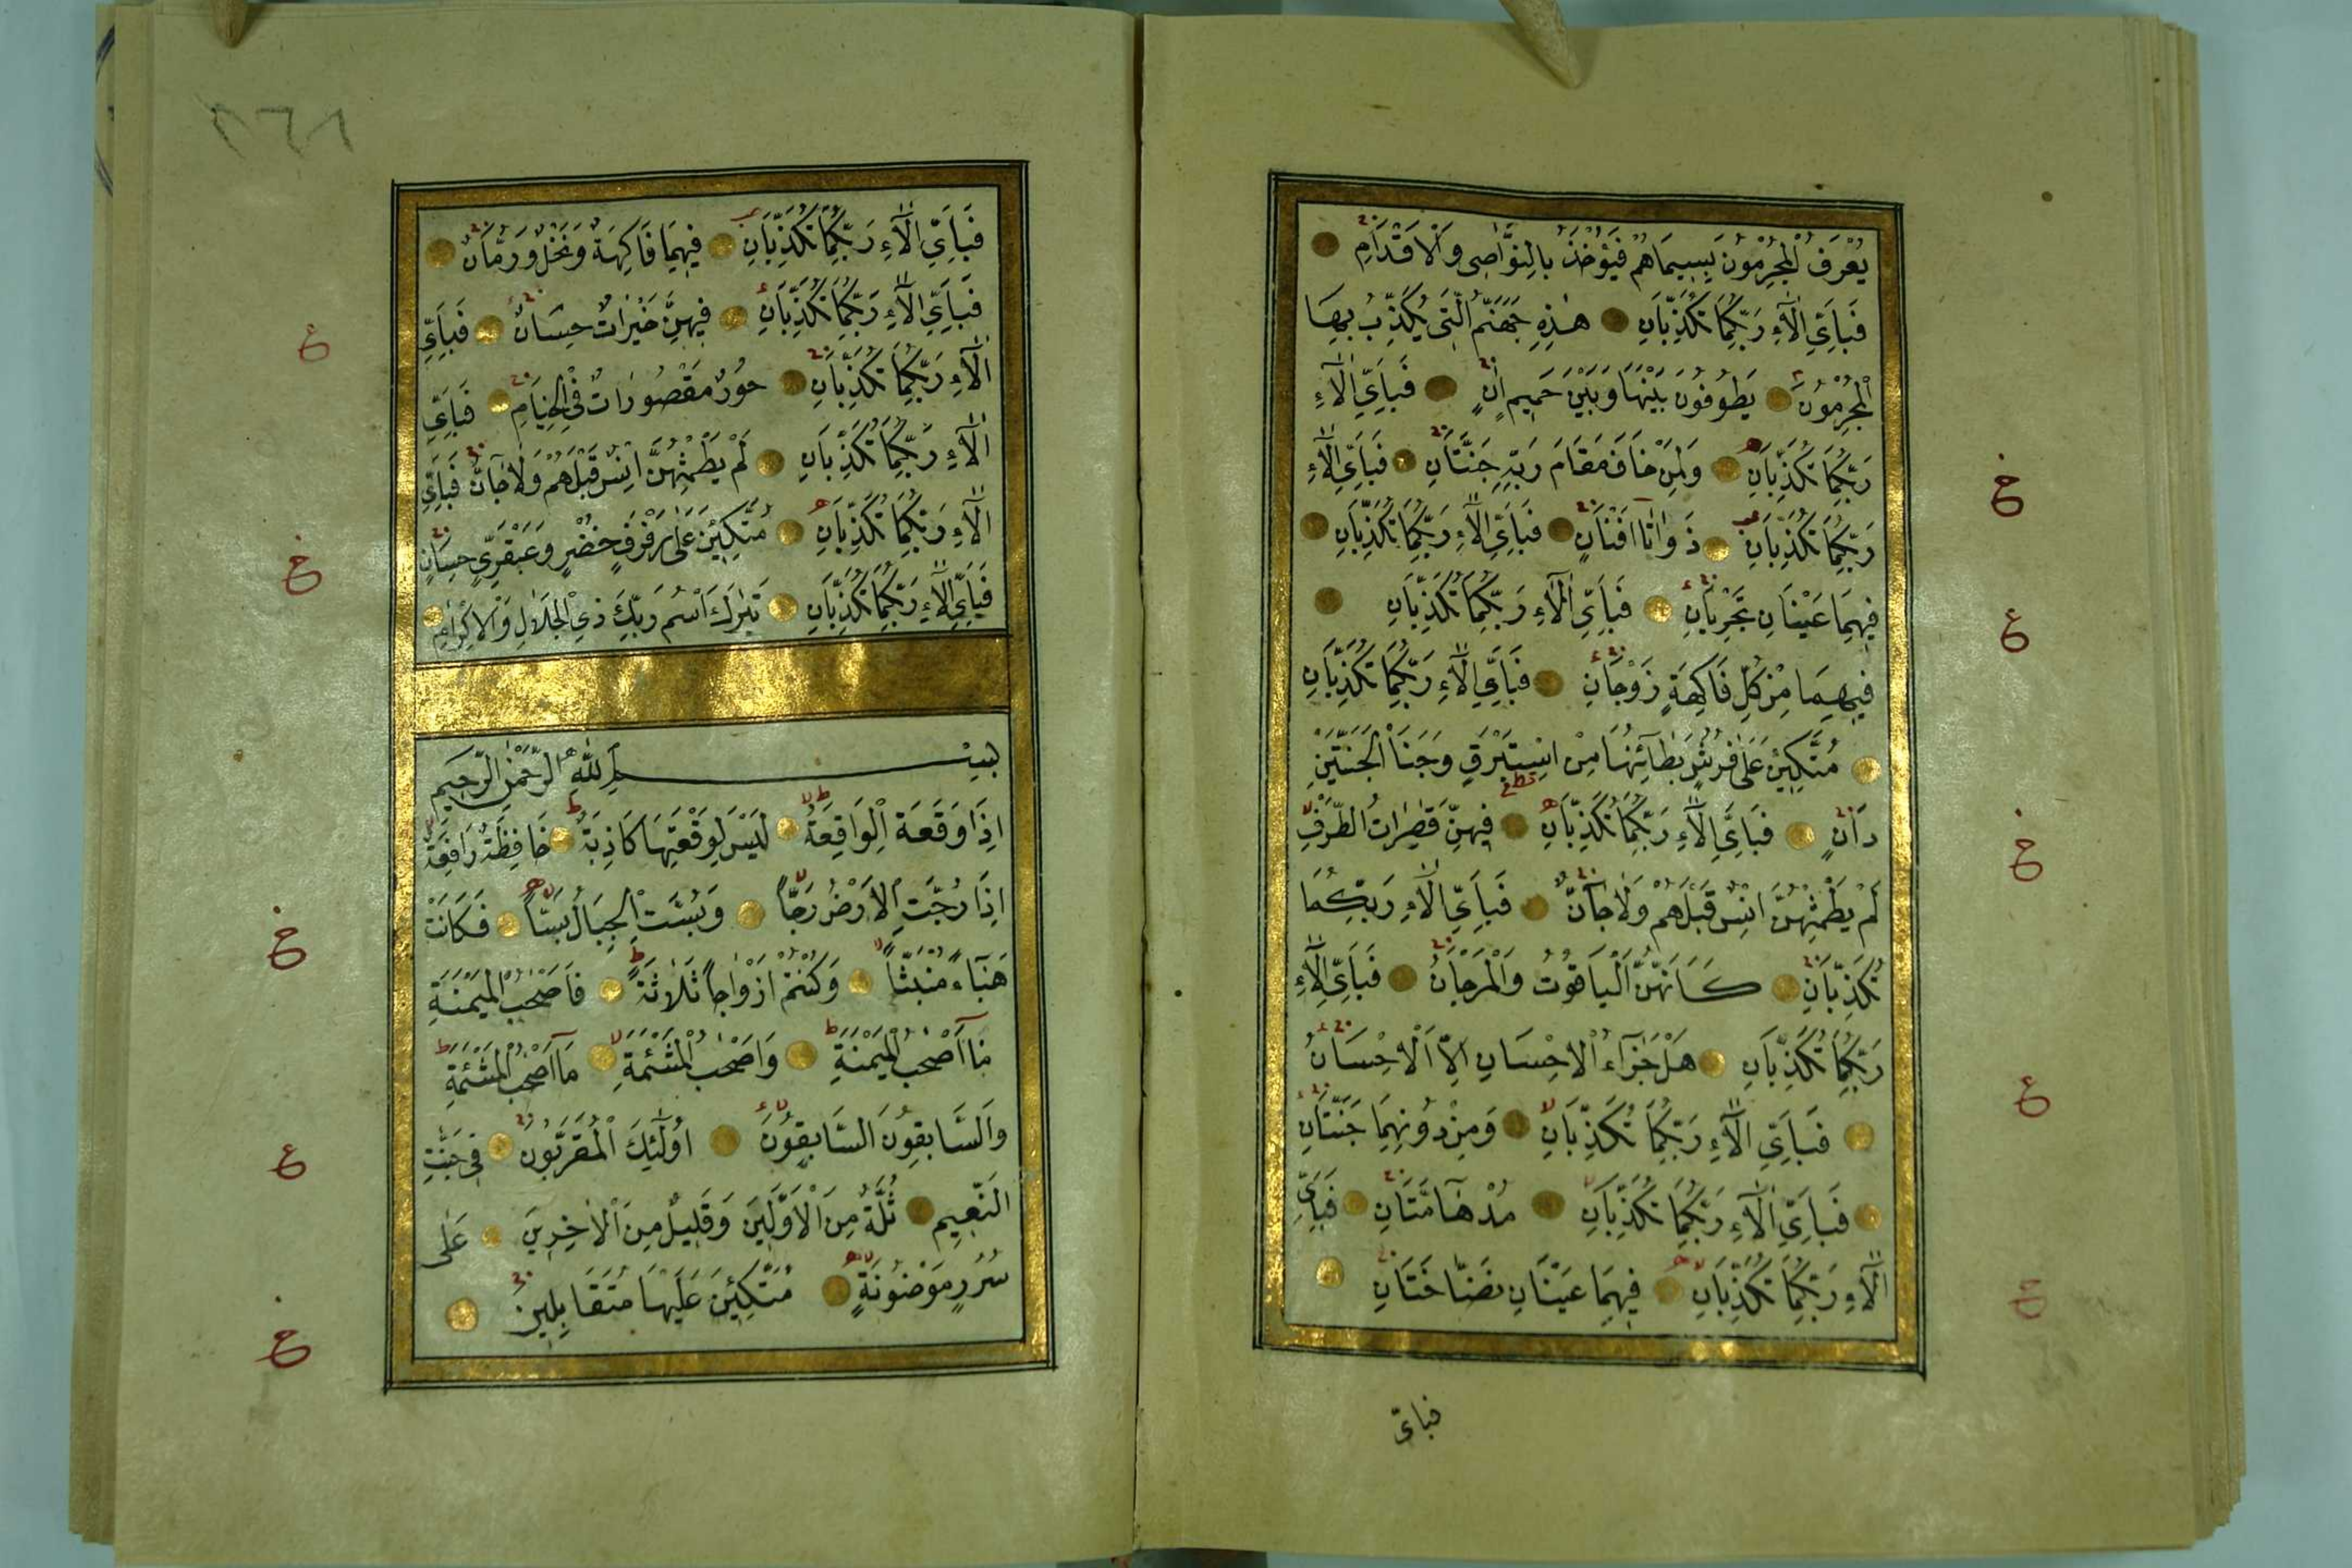 يُعْرَفُ الْمُجْرِمُونَ بِسِيمَاهُمْ فَيُؤْخَذُ بِالنَّوَاصِى وَالْاَقْدَامِ
فَبِاَىِّ اٰلَٓاءِ رَبِّكُمَا تُكَذِّبَانِ هٰذِهِ جَهَنَّمُ الَّتِى يُكَذِّبُ بِهَا
الْمُجْرِمُونَ يَطُوفُونَ بَيْنَهَا وَبَيْنَ حَمِيمٍ اٰنٍ فَبِاَىِّ اٰلَٓاءِ
رَبِّكُمَا تُكَذِّبَانِ وَلِمَنْ خَافَ مَقَامَ رَبِّهِ جَنَّتَانِ فَبِاَىِّ اٰلَٓاءِ
رَبِّكُمَا تُكَذِّبَانِ ذَوَاتَٓا اَفْنَانٍ فَبِاَىِّ اٰلَٓاءِ رَبِّكُمَا تُكَذِّبَانِ
فِيهِمَا عَيْنَانِ تَجْرِيَانِ فَبِاَىِّ اٰلَٓاءِ رَبِّكُمَا تُكَذِّبَانِ
فِيهِمَا مِنْ كُلِّ فَاكِهَةٍ زَوْجَانِ فَبِاَىِّ اٰلَٓاءِ رَبِّكُمَا تُكَذِّبَانِ
مُتَّكِئِينَ عَلٰى فُرُشٍ بَطَٓائِنُهَا مِنْ اِسْتَبْرَقٍ وَجَنَا الْجَنَّتَيْنِ
دَانٍ فَبِاَىِّ اٰلَٓاءِ رَبِّكُمَا تُكَذِّبَانِ فِيهِنَّ قٰصِرَاتُ الطَّرْفِ
لَمْ يَطْمِثْهُنَّ اِنْسٌ قَبْلَهُمْ وَلَا جَٓانٌّ فَبِاَىِّ اٰلَٓاءِ رَبِّكُمَا
تُكَذِّبَانِ كَاَنَّهُنَّ الْيَاقُوتُ وَالْمَرْجَانُ فَبِاَىِّ اٰلَٓاءِ
رَبِّكُمَا تُكَذِّبَانِ هَلْ جَزَٓاءُ الْاِحْسَانِ اِلَّا الْاِحْسَانُ
فَبِاَىِّ اٰلَٓاءِ رَبِّكُمَا تُكَذِّبَانِ وَمِنْ دُونِهِمَا جَنَّتَانِ
فَبِاَىِّ اٰلَٓاءِ رَبِّكُمَا تُكَذِّبَانِ مُدْهَٓامَّتَانِ فَبِاَىِّ
اٰلَٓاءِ رَبِّكُمَا تُكَذِّبَانِ فِيهِمَا عَيْنَانِ نَضَّاخَتَانِ
فباىّ
٢٦٨
فَبِاَىِّ اٰلَٓاءِ رَبِّكُمَا تُكَذِّبَانِ فِيهِمَا فَاكِهَةٌ وَنَخْلٌ وَرُمَّانٌ
فَبِاَىِّ اٰلَٓاءِ رَبِّكُمَا تُكَذِّبَانِ فِيهِنَّ خَيْرَاتٌ حِسَانٌ فَبِاَىِّ
اٰلَٓاءِ رَبِّكُمَا تُكَذِّبَانِ حُورٌ مَقْصُورَاتٌ فِى الْخِيَامِ فَبِاَىِّ
اٰلَٓاءِ رَبِّكُمَا تُكَذِّبَانِ لَمْ يَطْمِثْهُنَّ اِنْسٌ قَبْلَهُمْ وَلَا جَٓانٌّ فَبِاَىِّ
اٰلَٓاءِ رَبِّكُمَا تُكَذِّبَانِ مُتَّكِئِينَ عَلٰى رَفْرَفٍ خُضْرٍ وَعَبْقَرِىٍّ حِسَانٍ
فَبِاَىِّ اٰلَٓاءِ رَبِّكُمَا تُكَذِّبَانِ تَبٰرَكَ اسْمُ رَبِّكَ ذِى الْجَلَالِ وَالْاِكْرَامِ
بِسْمِ اللّٰهِ الرَّحْمٰنِ الرَّحِيمِ
اِذَا وَقَعَةِ الْوَاقِعَةُ لَيْسَ لِوَقْعَتِهَا كَاذِبَةٌ خَافِظَةٌ رَافِعَةٌ
اِذَا رُجَّتِ الْاَرْضُ رَجًّا وَبُسَّتِ الْجِبَالُ بَسًّا فَكَانَتْ
هَبَٓاءً مُنْبَثًّا وَكُنْتُمْ اَزْوَاجًا ثَلَاثَةً فَاَصْحٰبُ الْمَيْمَنَةِ
مَٓا اَصْحٰبُ الْمَيْمَنَةِ وَاَصْحٰبُ الْمَشْئَمَةِ مَٓا اَصْحٰبُ الْمَشْئَمَةِ
وَالسَّابِقُونَ السَّابِقُونَ اُولٰٓئِكَ الْمُقَرَّبُونَ فِى جَنّٰتِ
النَّعِيمِ ثُلَّةٌ مِنَ الْاَوَّلِينَ وَقَلِيلٌ مِنَ الْاٰخِرِينَ عَلٰى
سُرُرٍ مَوْضُونَةٍ مُتَّكِئِينَ عَلَيْهَا مُتَقَابِلِينَ